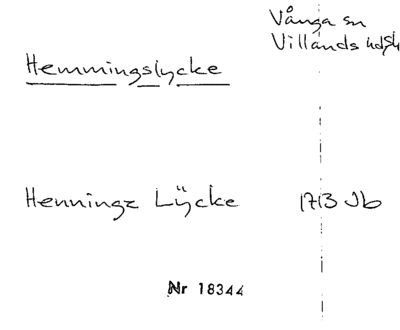 Vånga sn
Villands hdsk
Hemmingslycke
Henninge Lÿcke 1713 Jb
Nr 18344